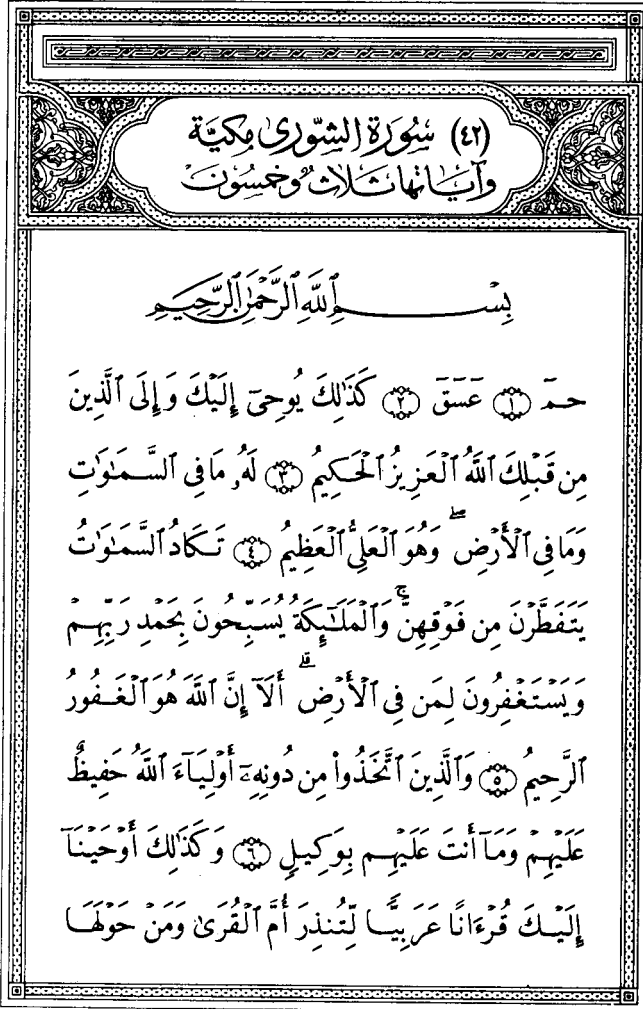 (٤٢) سُورَةُ الشُّورىٰ مَكيَّة
وَآيَاتُهَا ثَلَاثٌ وَخَمْسُونَ
بِسْمِ ٱللَّهِ ٱلرَّحْمَٰنِ ٱلرَّحِيمِ
حمٓ ١ عٓسٓقٓ ٢ كَذَٰلِكَ يُوحِىٓ إِلَيْكَ وَإِلَى ٱلَّذِينَ
مِن قَبْلِكَ ٱللَّهُ ٱلْعَزِيزُ ٱلْحَكِيمُ ٣ لَهُۥ مَا فِى ٱلسَّمَٰوَٰتِ
وَمَا فِى ٱلْأَرْضِ ۖ وَهُوَ ٱلْعَلِىُّ ٱلْعَظِيمُ ٤ تَكَادُ ٱلسَّمَٰوَٰتُ
يَتَفَطَّرْنَ مِن فَوْقِهِنَّ ۚ وَٱلْمَلَٰٓئِكَةُ يُسَبِّحُونَ بِحَمْدِ رَبِّهِمْ
وَيَسْتَغْفِرُونَ لِمَن فِى ٱلْأَرْضِ ۗ أَلَآ إِنَّ ٱللَّهَ هُوَ ٱلْغَفُورُ
ٱلرَّحِيمُ ٥ وَٱلَّذِينَ ٱتَّخَذُوا۟ مِن دُونِهِۦٓ أَوْلِيَآءَ ٱللَّهُ حَفِيظٌ
عَلَيْهِمْ وَمَآ أَنتَ عَلَيْهِم بِوَكِيلٍ ٦ وَكَذَٰلِكَ أَوْحَيْنَآ
إِلَيْكَ قُرْءَانًا عَرَبِيًّا لِّتُنذِرَ أُمَّ ٱلْقُرَىٰ وَمَنْ حَوْلَهَا